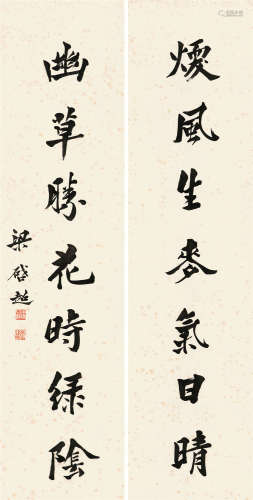 煖風生麥氣日晴
幽草勝花時綠陰
梁啓超